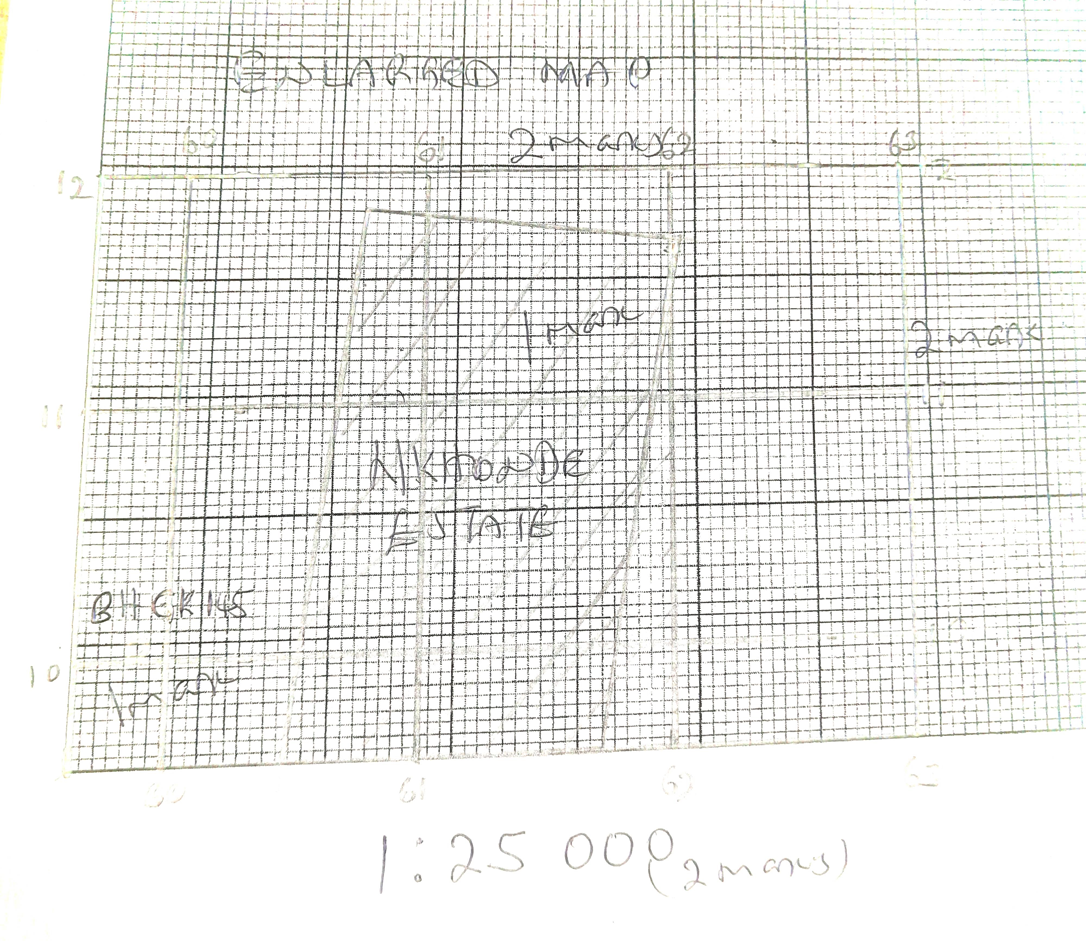 ENLARGED MAP
2 marks
60 61 62 63
12
1 mark
2 mark
11 11
NKHONDE
ESTATE
BHEK145
10
1 mark
61 62
1:25 000 (2 marks)